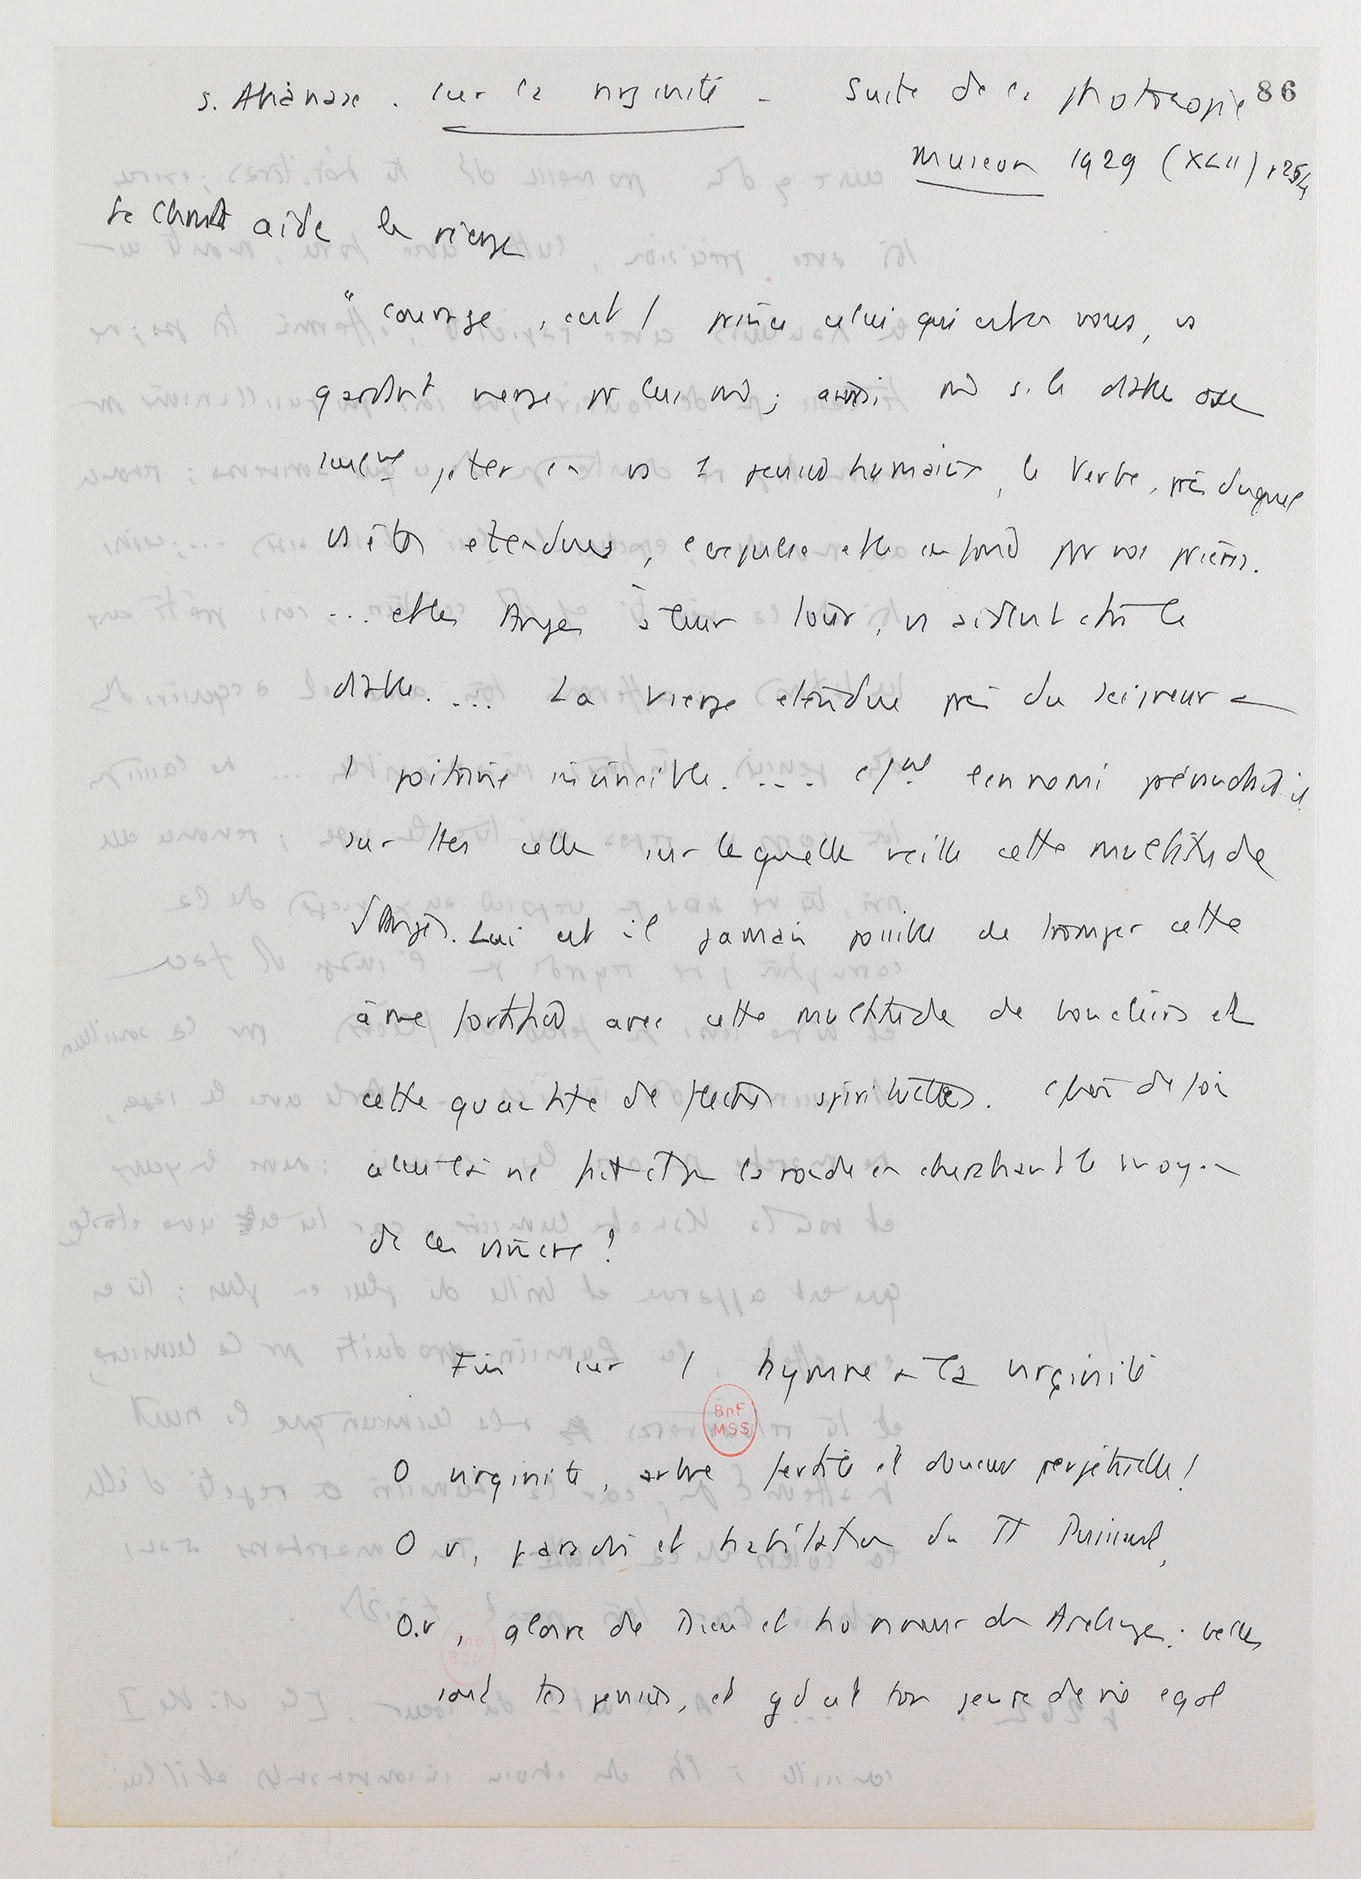 S. Athanase. sur la virginité - Suite de la photocopie 86
Museon 1929 (XLII) p 254
Le Christ aide la vierge
" courage, c'est / celui qui est en vous, vs
gardent vierge pr lui ; aussi si le diable ose
jeter en vs 1 pensée humaine, le Verbe, près duquel
vs êtes étendues, l'expulse par vos prières.
... et les Anges à leur tour, vs aident ctre le
diable. ... La vierge étendue près du Seigneur a
1 poitrine invincible. ... l'ennemi
sur ttes celle sur laquelle veille cette multitude
d'Anges. Lui est il jamais possible de tromper cette
âme fortifiée avec cette multitude de boucliers et
cette quantité de flèches spirituelles. de foi
celui-là ne la ronde en cherchant le moyen
de la vaincre !
Fin sur l hymne à la virginité
BnF
MSS
O virginité, arbre fertile et douceur perpétuelle !
O v, paradis et habitation du Tt Puissant,
O.v, gloire de Dieu et honneur des Archanges. belles
sont tes pensées, et gd est ton genre de vie egal